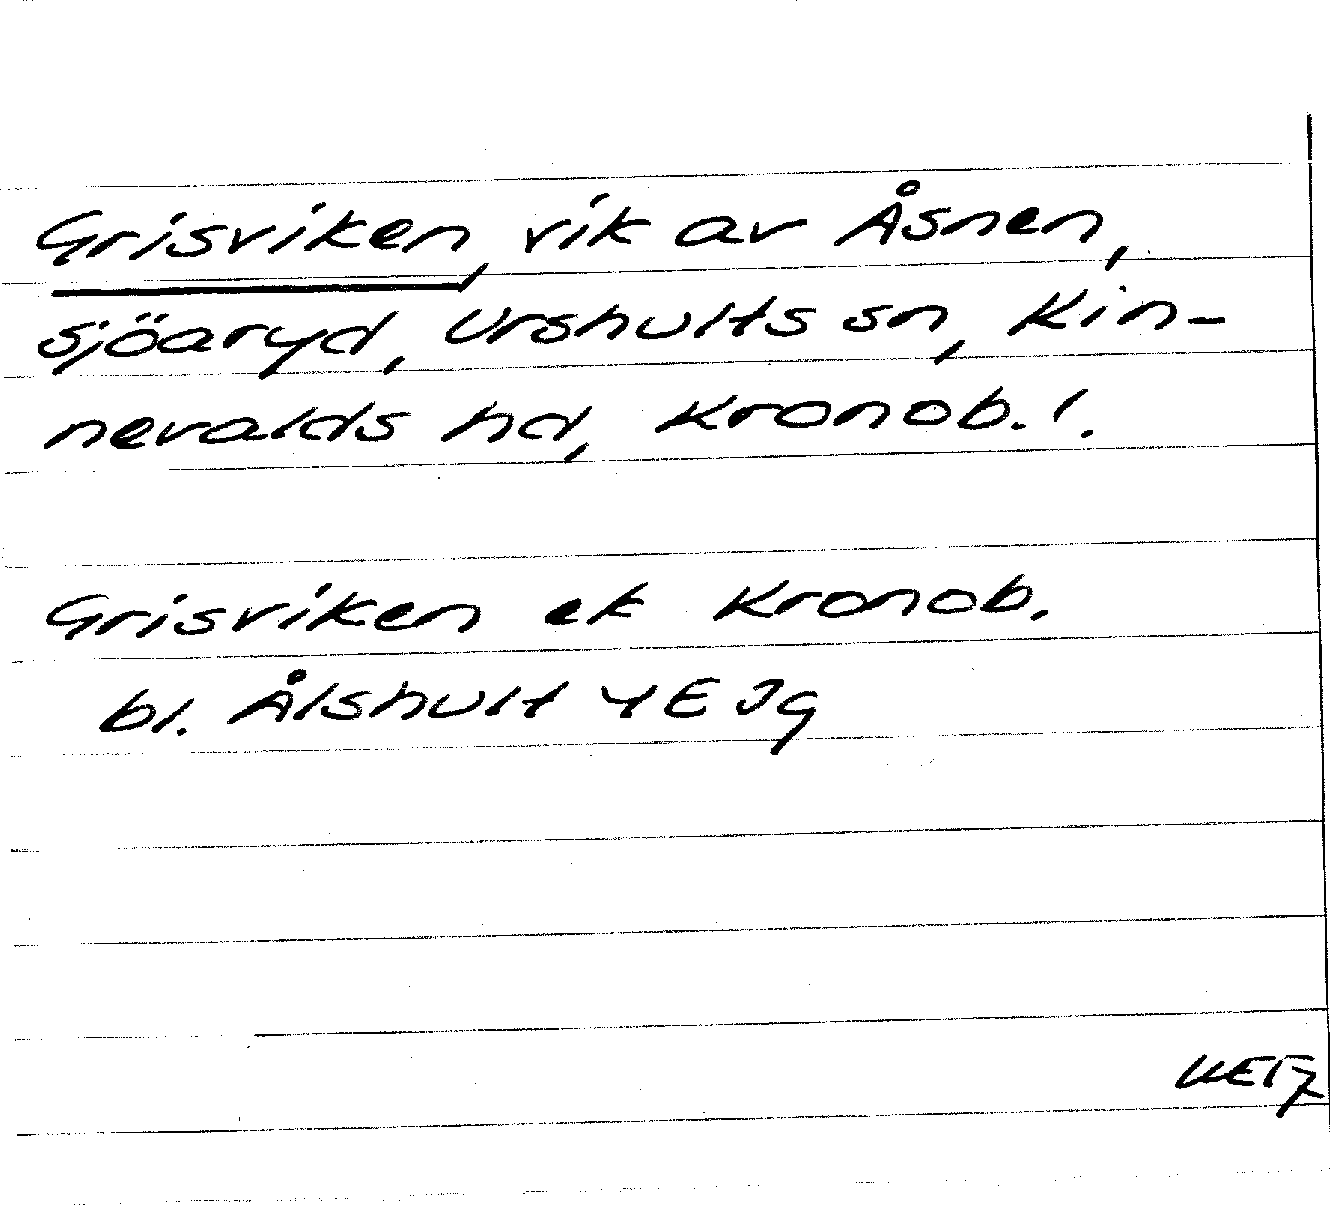 Grisviken, vik av Åsnen,
Sjöaryd, Urshults sn, Kin-
nevalds hd, Kronob. l.
Grisviken ek Kronob.
bl. Ålshult 4E Jg